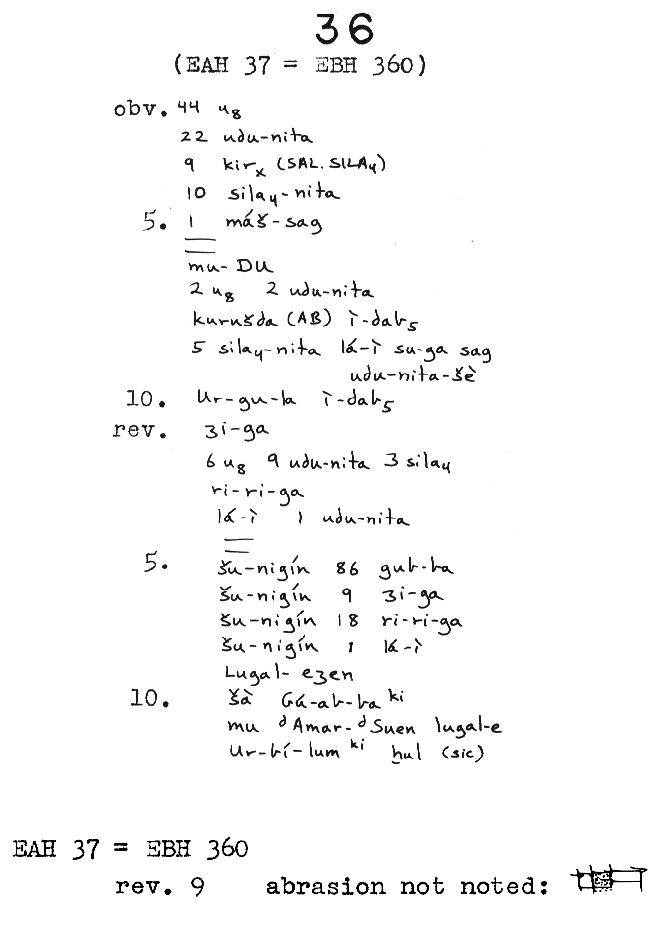 36
(EAH 37 = EBH 360)
obv. 44 u₈
22 udu-nita
9 kirₓ (SAL.SILA₄)
10 sila₄-nita
5. 1 máš-sag
mu-DU
2 u₈ 2 udu-nita
kurušda (AB) ì-dab₅
5 sila₄-nita lá-ì su-ga sag
udu-nita-šè
10. Ur-gu-la ì-dab₅
rev. zi-ga
6 u₈ 9 udu-nita 3 sila₄
ri-ri-ga
lá-ì 1 udu-nita
5. šu-nigín 86 gub-ba
šu-nigín 9 zi-ga
šu-nigín 18 ri-ri-ga
šu-nigín 1 lá-ì
Lugal-ezen
10. šà Gá-ab-ba ᵏⁱ
mu ᵈAmar-ᵈSuen lugal-e
Ur-bí-lum ᵏⁱ ḫul (sic)
EAH 37 = EBH 360
rev. 9 abrasion not noted: